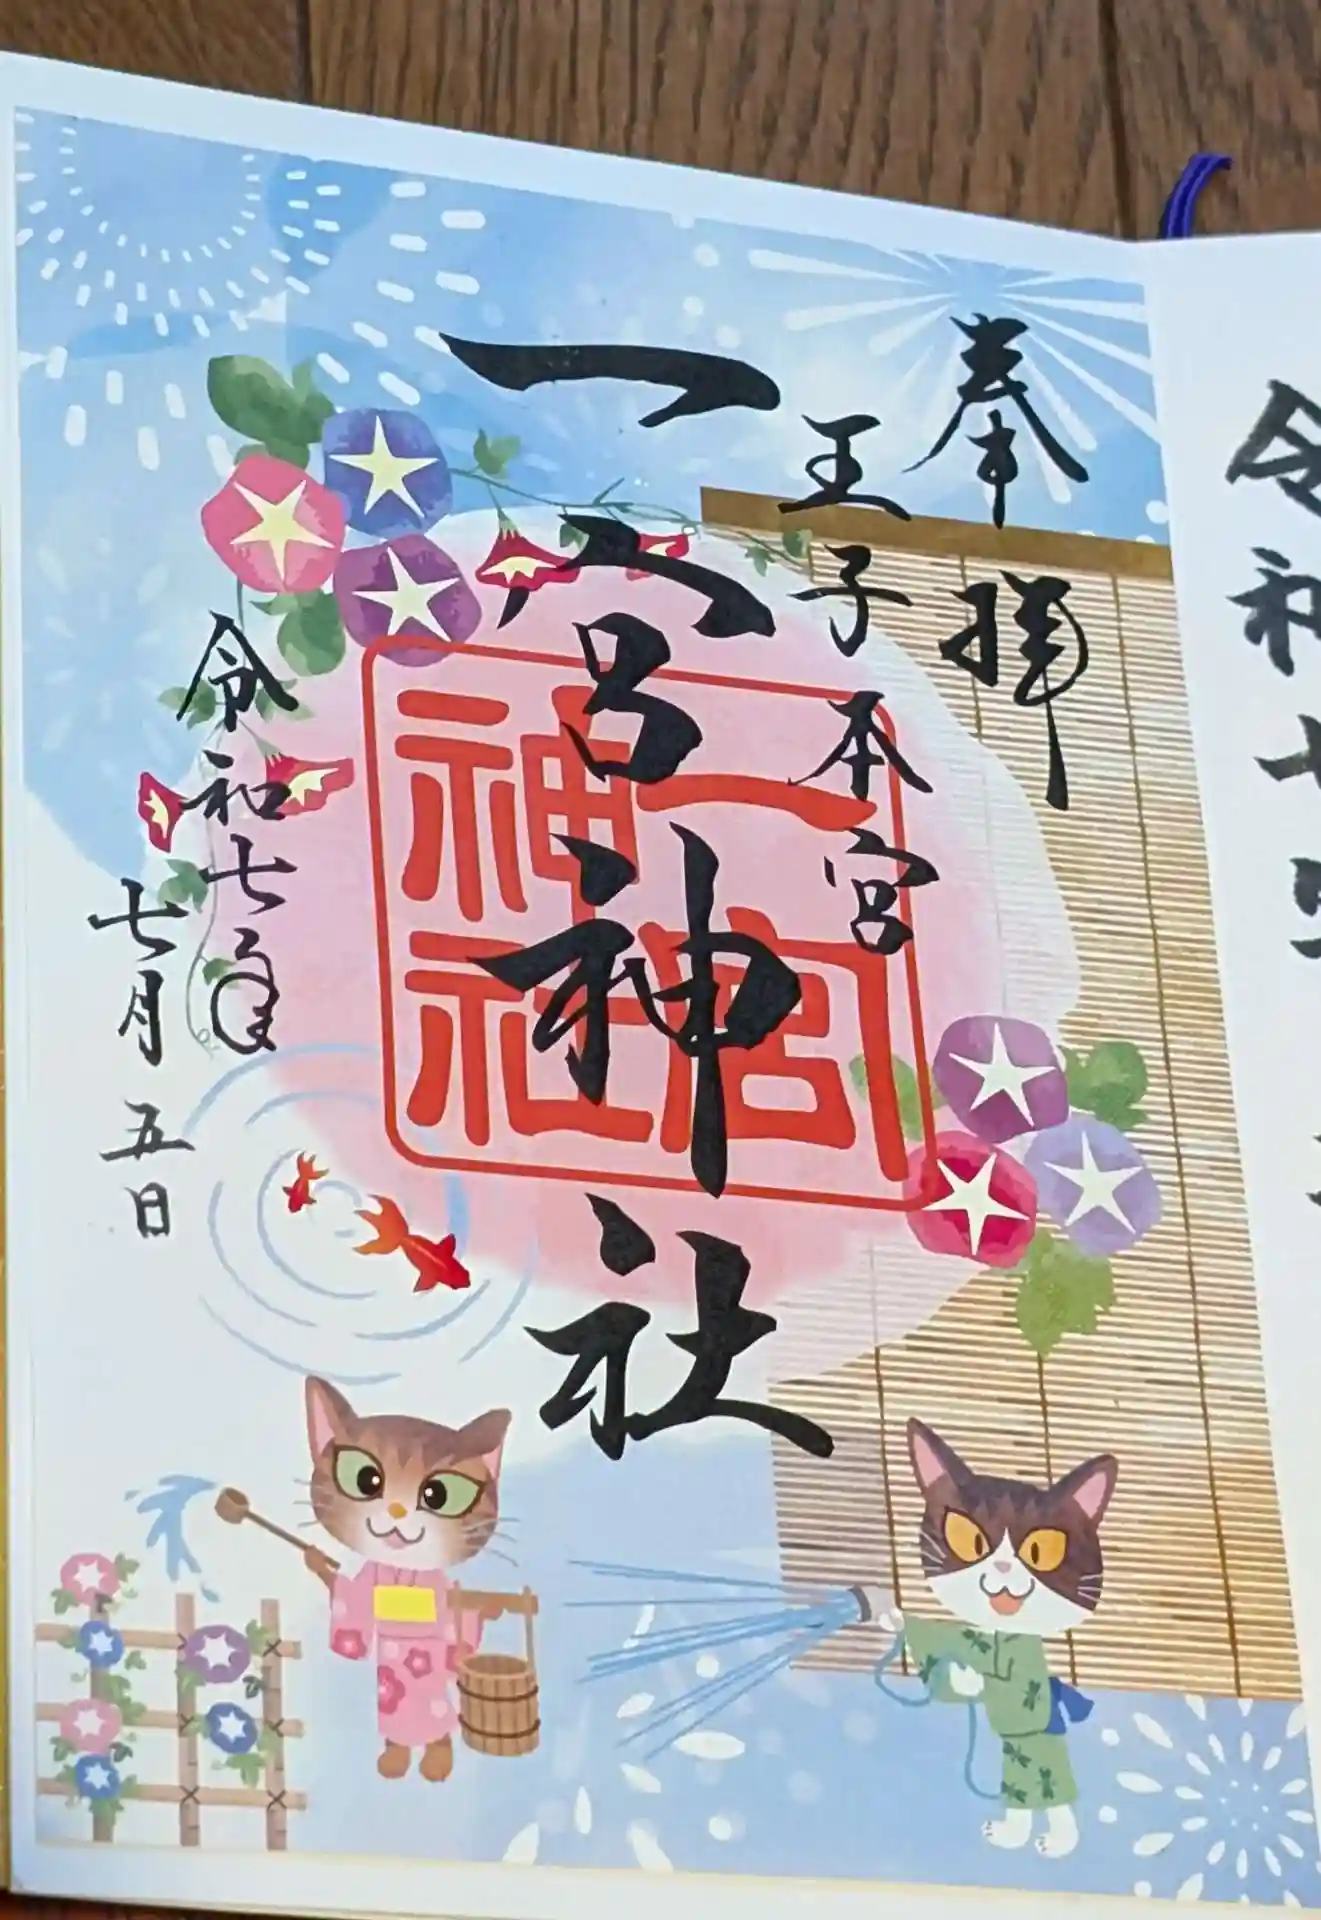 奉拝
王子本宮
一宮神社
一宮
神社
令和七年
七月五日
令和七